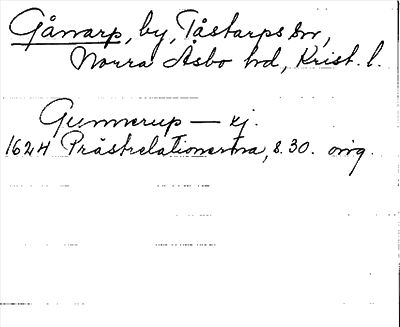 Gånarp, by, Tåstarps sn,
Norra Åsbo hd, Krist. l.
Gunnerup — ej.
1624 Prästrelationerna, s. 30. orig.